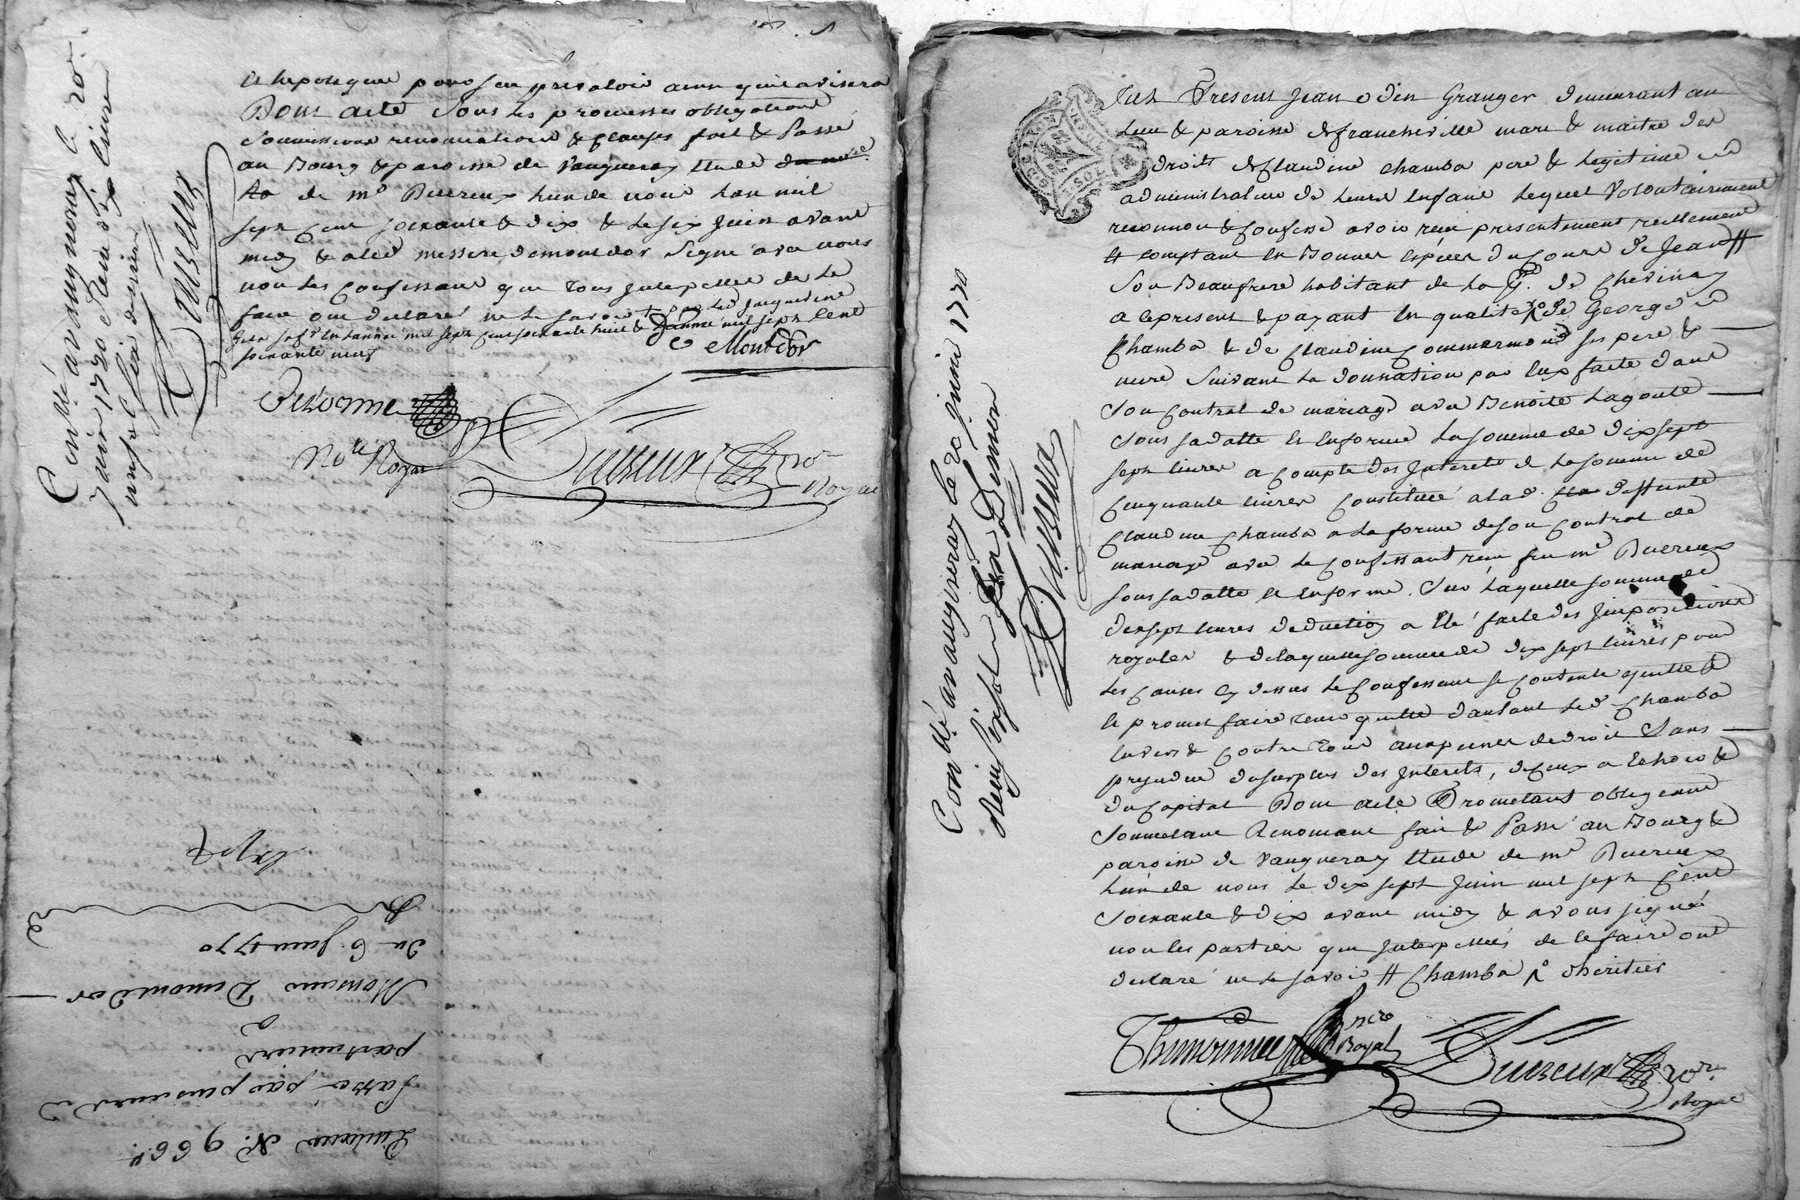 et hipotequer pour s'en prevaloir ainsi qu'il avisera
Dont acte sous les promesses obligations
soumissions renonciations & clauses fait & Passé
au Bourg & paroisse de vaugneray Etude
de me Duereux l'un de nous l'an mil
sept cent soixante & dix & le six juin avant
midy & a led messire demontdor signé avec nous
non les confessants que tous Interpellés de le
faire ont declaré ne le savoir
soixante neuf
Montdor
Not. Royal
Royal
Con.lé a vaugneray le 20.
juin 1770
Quittances N. 966.
Passé par plusieurs
particuliers
a
Monsieur Demontdor
du 6. Juin 1770
expé
Fut Present Jean odin Granger demeurant au
lieu & paroisse de francheville mari & maitre des
droits de Claudine Chamba pere & legitime
administrateur de leurs enfans lequel volontairement
reconnoit & confesse avoir reçu presentement reellement
& comptant en Bonnes especes du cours de Jean #
Son Beaufrere habitant de la P. de Chevinay
a ce present & payant en qualité de George
Chamba & de Claudine Commermond ses pere &
mere suivant la donnation par Eux faite dans
son contrat de mariage avec Benoite Lagoute
sous sa datte et en forme la somme de dix sept
sept livres a compte des Interets de la somme de
Cinquante livres Constituée a lad. deffunte
Claudine Chamba a la forme de son contrat de
mariage avec le confessant reçu feu me Duereux
sous sa datte et en forme. Sur laquelle somme de
dix sept livres deduction a été faite des Impositions
royales & de laquelle somme de dix sept livres pour
les causes cy dessus le confessant se contente quitte &
et promet faire tenir quitte d'autant led Chamba
envers & contre tous aux peines de droit sans
prejudice du surplus des Interets, de ceux a echoir &
du Capital Dont acte Promettant obligeant
soumettant Renonçant fait & Passé au Bourg &
paroisse de vaugneray Etude de me Duereux
l'un de nous le dix sept juin mil sept cent
soixante & dix avant midy & avons signé
non les parties que Interpellées de le faire ont
declaré ne le savoir # Chamba
Royal
Royal
Con.lé a vaugneray le 20 juin 1770